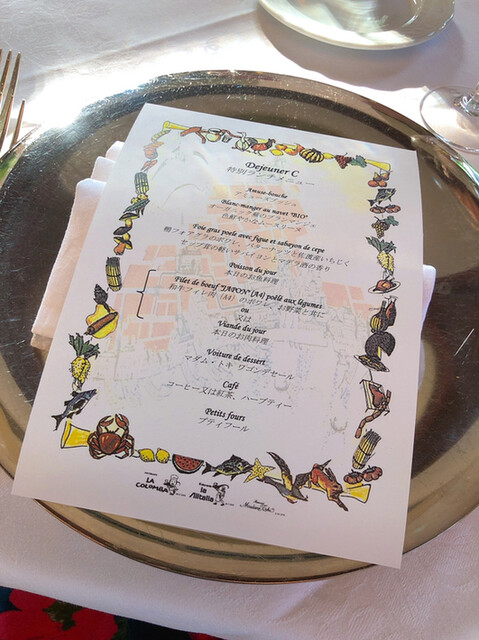 Dejeuner C
特別ランチメニュー
Amuse-bouche
アミューズブッシュ
Blanc-manger au navet "BIO"
色鮮やかなムースリーヌ
Foie gras poele avec figue et sabayon de cepe
鴨フォアグラのポワレ、バターナッツと佐渡産いちじく
セップ茸の軽いサバイヨン トマデラ酒の香り
Poisson du jour
本日のお魚料理
Filet de boeuf "JAPON" (A4) poêlé aux légumes
和牛フィレ肉 (A4) のポワレ、お野菜と共に
ou
又は
Viande du jour
本日のお肉料理
Voiture de dessert
マダム・トキ ワゴンデセール
Café
コーヒー又は紅茶、ハーブティー
Petits fours
プティフール
LA COLOMBA
la Alitalia
Madame Toki